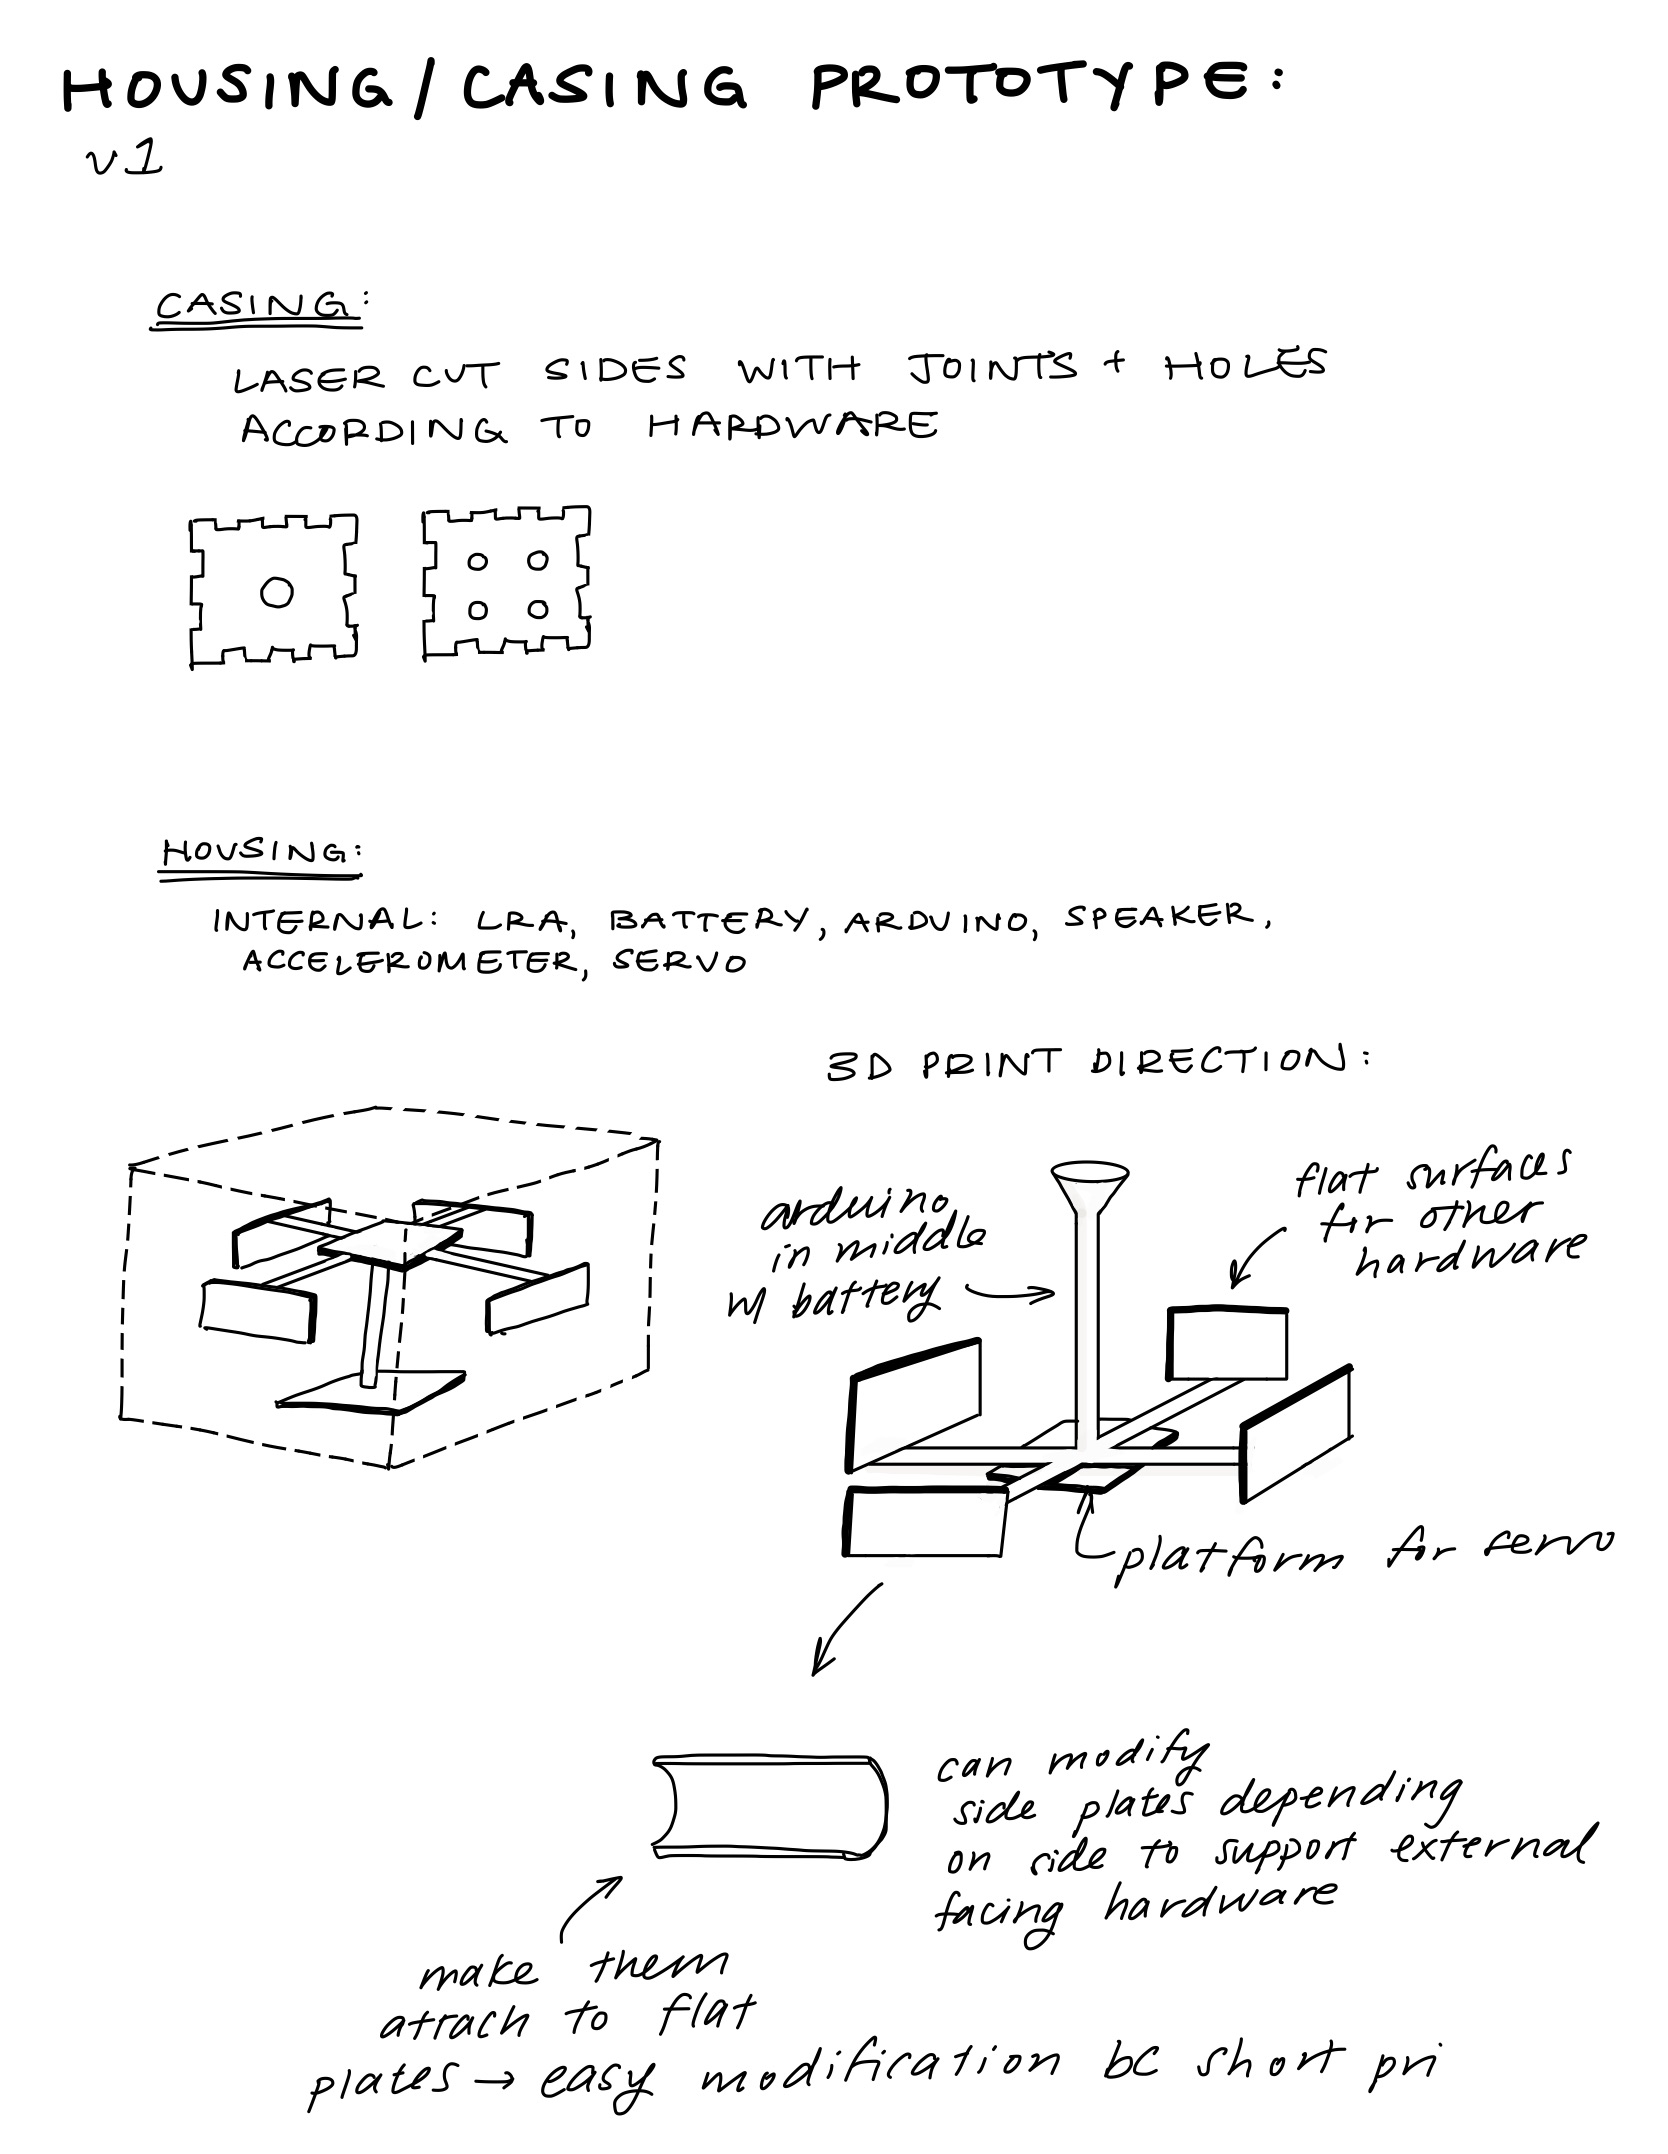 HOUSING/CASING PROTOTYPE:
v1
CASING:
LASER CUT SIDES WITH JOINTS + HOLES
ACCORDING TO HARDWARE
HOUSING:
INTERNAL: LRA, BATTERY, ARDUINO, SPEAKER,
ACCELEROMETER, SERVO
3D PRINT DIRECTION:
arduino
in middle
w/ battery
flat surfaces
for other
hardware
platform for servo
can modify
side plates depending
on side to support external
facing hardware
make them
attach to flat
plates → easy modification bc short pri